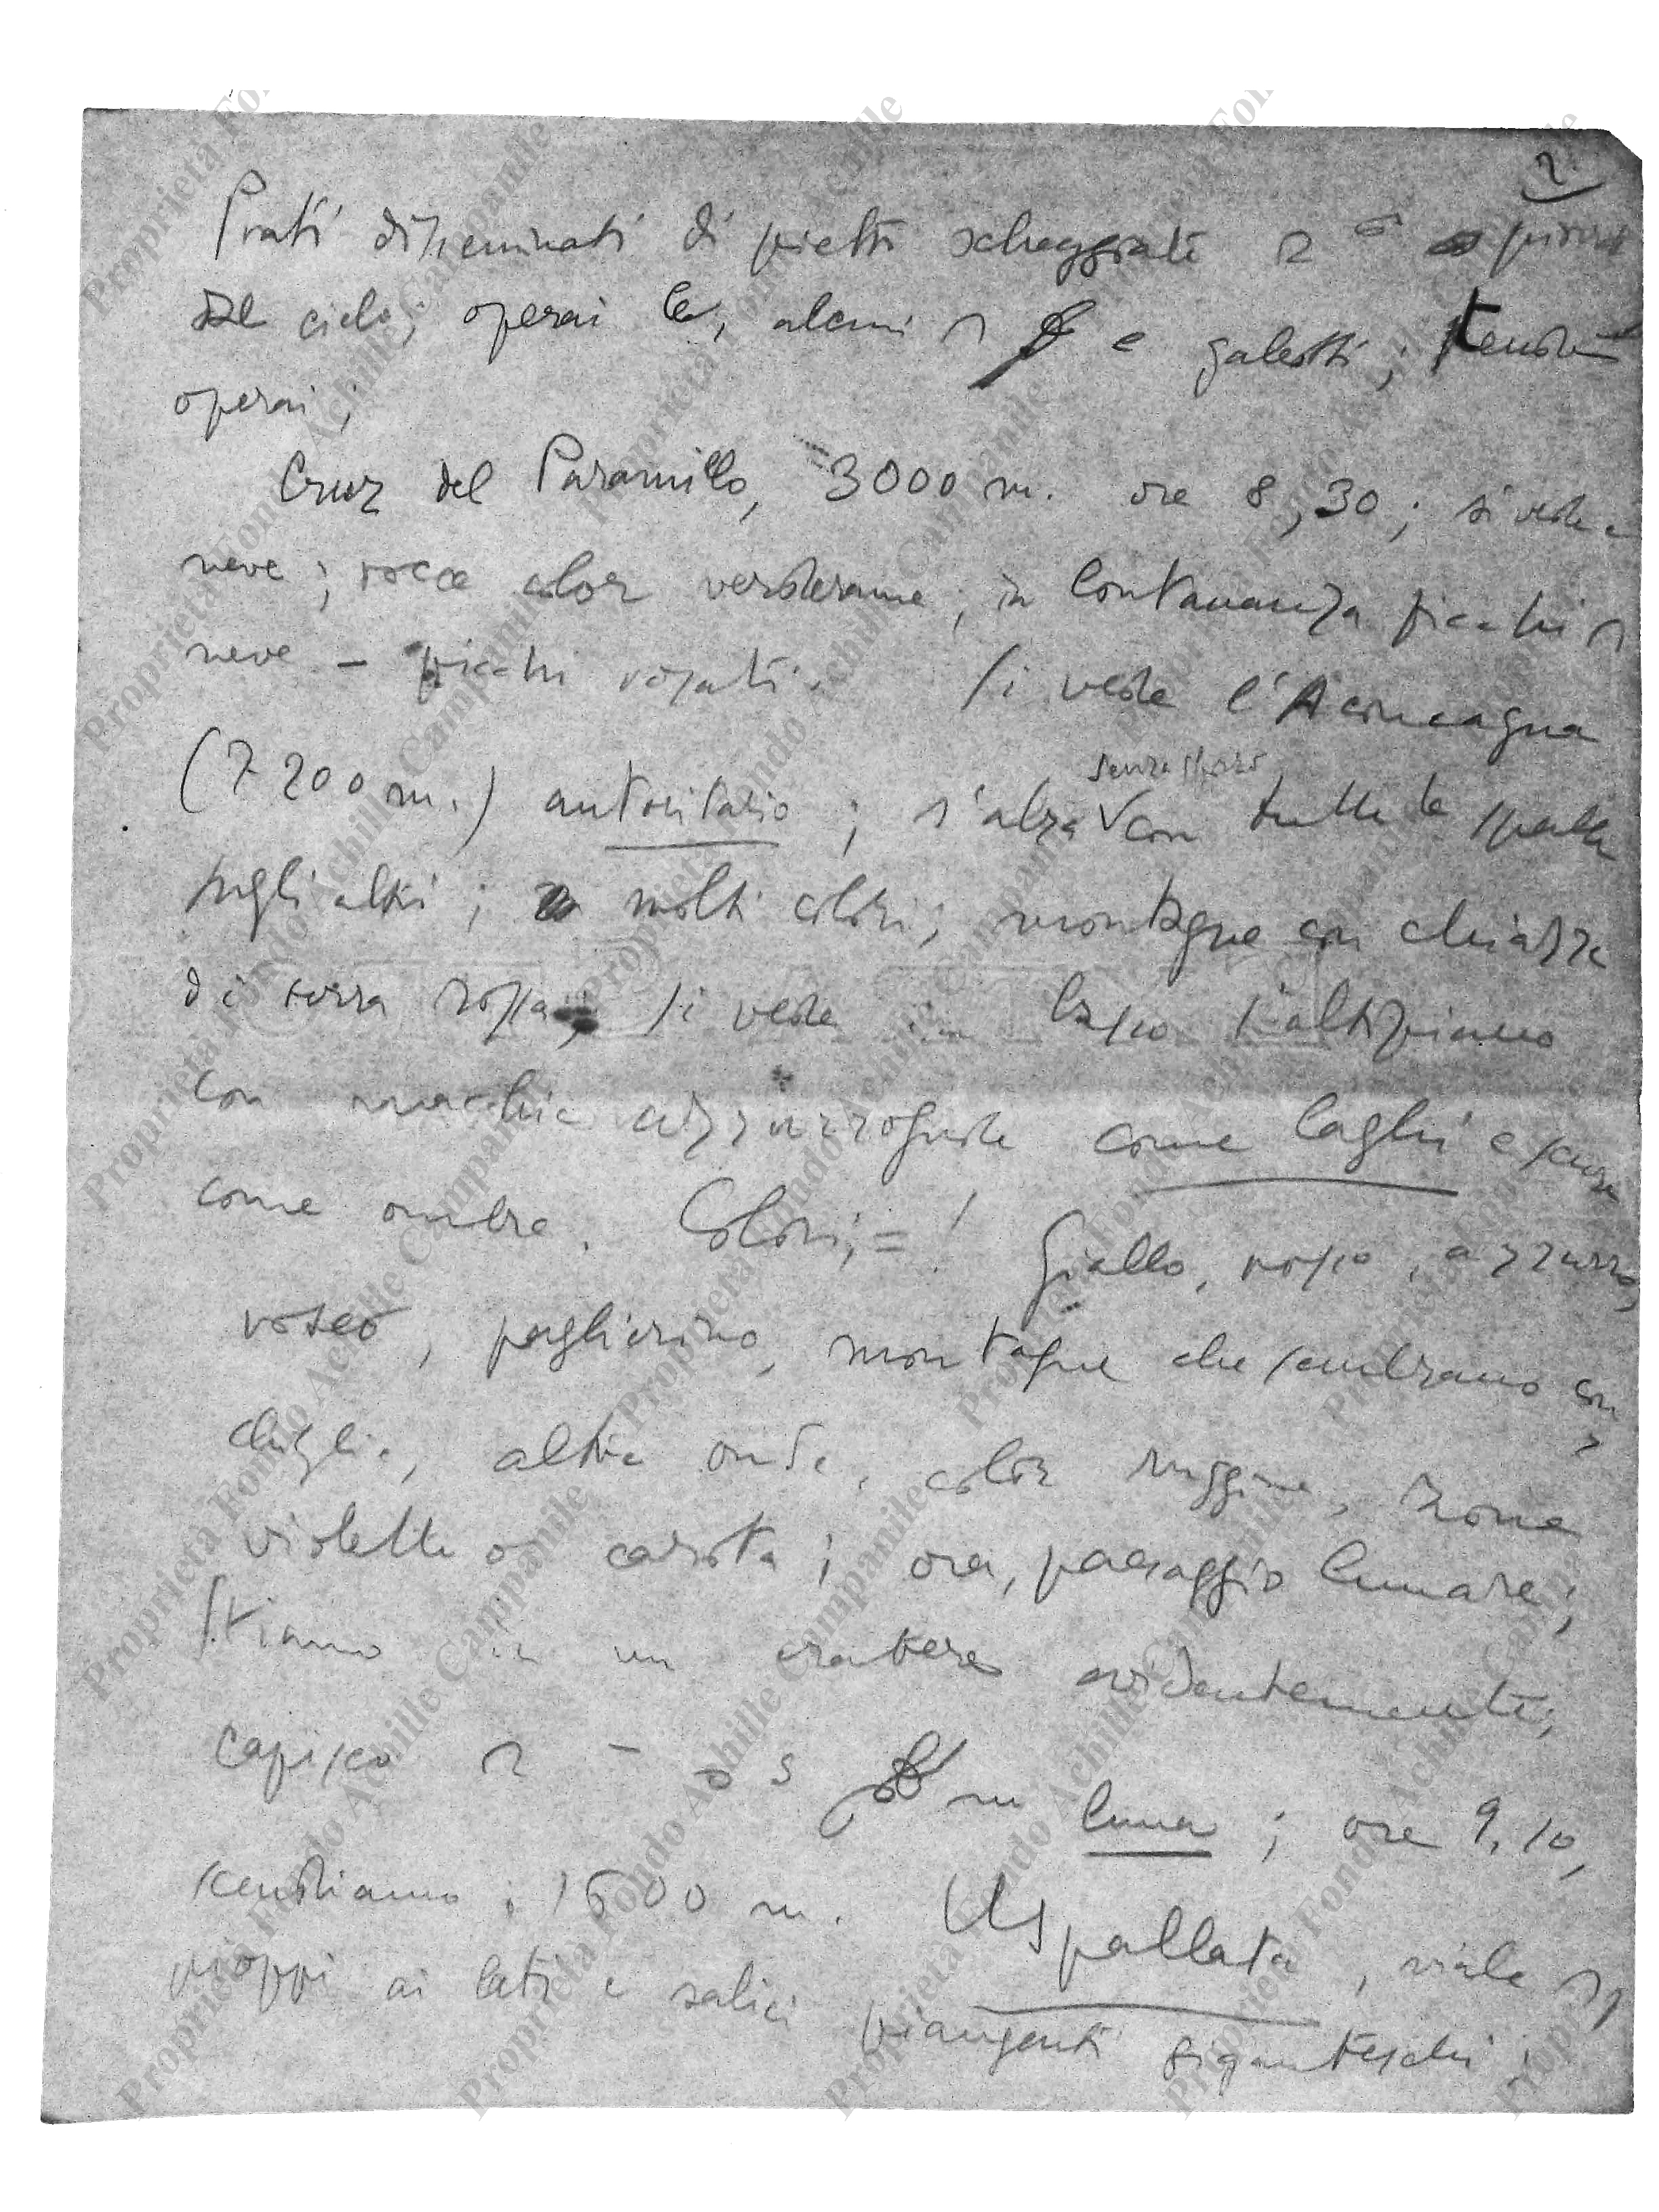 2.
Prati disseminati di pietre scheggiate
dal cielo; operai alcuni e galeotti; tende
operai;
Cruz del Paramillo, 3000 m. ore 8,30; si vede
neve; rocce color verderame; in lontananza picchi
neve – picchi rosati. Si vede l'Aconcagua
(7200 m.) autoritario; s'alza senza sforzo con tutte le spalle
sugli altri; molti colori; montagne con chiazze
di terra rossa, si vede un l'altipiano
con macchie azzurrognole come laghi e scure
come ombre. Colori, = ! Giallo, rosso, azzurro,
roseo, paglierino, montagne che sembrano con
chiglie, altre onde, color ruggine, zone
violette o carota; ora, paesaggio lunare;
Stiamo in un cratere evidentemente;
Capisco luna; ore 9,10,
scendiamo; 1600 m. Uspallata, viale
pioppi ai lati e salici piangenti giganteschi;
Proprietà Fondo Achille Campanile